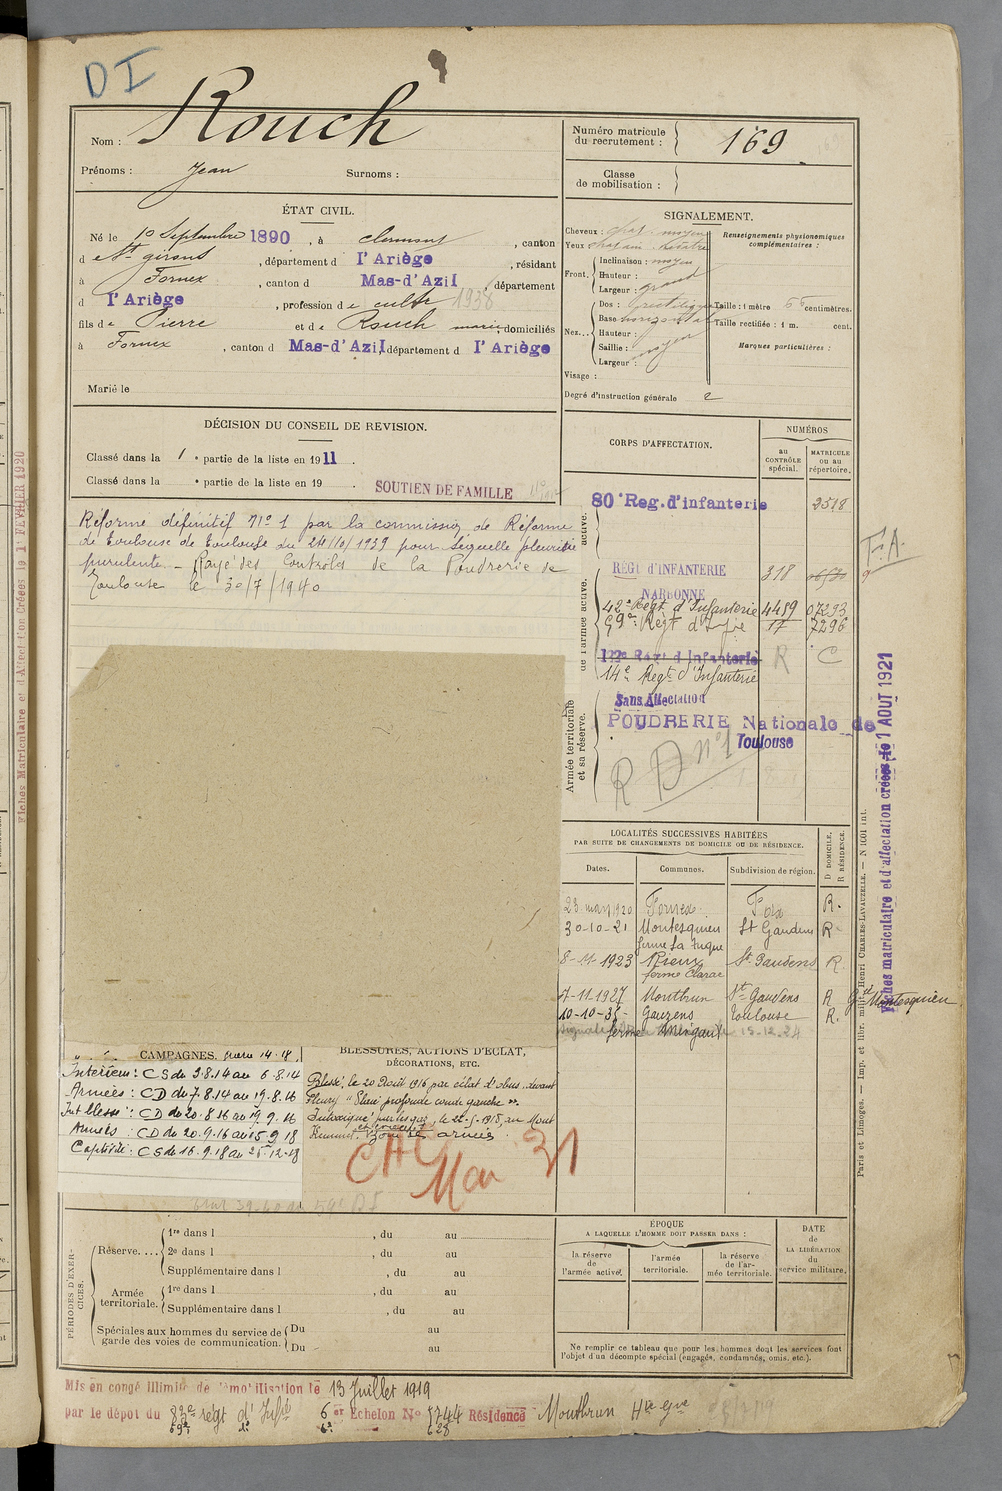 DI
Nom : Rouch
Prénoms : Jean Surnoms :
Numéro matricule du recrutement : 169
Classe de mobilisation :
ÉTAT CIVIL.
Né le 10 Septembre 1890, à Clermont, canton
d e St girons, département d l'Ariège, résidant
à Fornex, canton d Mas-d'Azil, département
d l'Ariège, profession de cultr 1938
fils de Pierre et de Rouch marie, domiciliés
à Fornex, canton d Mas-d'Azil, département d l'Ariège
Marié le
SIGNALEMENT.
Cheveux : chat. moyen
Yeux chatain
Renseignements physionomiques complémentaires :
Front. Inclinaison : moyen
Hauteur :
Largeur : grand
Nez... Dos : rectiligne
Base horizontal
Hauteur :
Saillie : moyen
Largeur :
Taille : 1 mètre centimètres.
Taille rectifiée : 1 m. cent.
Marques particulières :
Visage :
Degré d'instruction générale 2
DÉCISION DU CONSEIL DE REVISION.
Classé dans la 1 e partie de la liste en 1911.
Classé dans la e partie de la liste en 19 .
SOUTIEN DE FAMILLE
Réforme définitif N° 1 par la commission de Réforme
de Toulouse de Toulouse du 24/10/1939 pour séquelle pleurésie
purulente. - Rayé des Contrôles de la Poudrerie de
Toulouse le 30/7/1940
CORPS D'AFFECTATION.
NUMÉROS
au CONTRÔLE spécial.
MATRICULE ou au répertoire.
active.
80e Reg. d'infanterie 2518
de l'armée active.
REGT d'INFANTERIE 318
NARBONNE
42e Regt d'Infanterie 4489 07293
59e Regt d'Infie 17 7296
122e Regt d'Infanterie R C
14e Regt d'Infanterie
Armée territoriale et sa réserve.
Sans Affectation
POUDRERIE Nationale de
Toulouse
R D n° 1
F.A.
LOCALITÉS SUCCESSIVES HABITÉES
PAR SUITE DE CHANGEMENTS DE DOMICILE OU DE RÉSIDENCE.
D DOMICILE, R RÉSIDENCE.
Dates. Communes. Subdivision de région.
23 mars 1920 Fornex Foix R.
30-10-21 Montesquieu St Gaudens R
ferme La Tuque
8-11-1923 Rieux St Gaudens R
ferme Clarac
7-11-1927 Montbrun St Gaudens R Gd Montesquieu
10-10-35 Gauzens Toulouse R.
ferme Mingaut 15.12.24
CAMPAGNES. guerre 14-18,
Intérieur : CS du 3.8.14 au 6.8.14
Armées : CD du 7.8.14 au 19.8.16
Int blessé : CD du 20.8.16 au 19.9.16
Armées : CD du 20.9.16 au 15.9.18
Captivité : CS du 16.9.18 au 25.12.18
BLESSURES, ACTIONS D'ÉCLAT,
DÉCORATIONS, ETC.
Blessé, le 20 Août 1916, par éclat d'obus devant
Fleury "Plaie profonde coude gauche".
Intoxiqué par les gaz, le 22-5-1918, au Mont
Kemmel. et évacué
Zone des armées.
CAC
Mar 31
PÉRIODES D'EXERCICES.
Réserve.... 1re dans l , du au
2e dans l , du au
Supplémentaire dans l , du au
Armée territoriale. 1re dans l , du au
Supplémentaire dans l , du au
Spéciales aux hommes du service de garde des voies de communication. Du au
Du au
ÉPOQUE
A LAQUELLE L'HOMME DOIT PASSER DANS :
la réserve de l'armée active.
l'armée territoriale.
la réserve de l'armée territoriale.
DATE DE LA LIBÉRATION du service militaire.
Ne remplir ce tableau que pour les hommes dont les services font
l'objet d'un décompte spécial (engagés, condamnés, omis, etc.).
Mis en congé illimité de démobilisation le 13 Juillet 1919
par le dépôt du 83e régt d'Infie 6er Echelon No 5744 Résidence Montbrun Hte Gne
59e d° 6e 628
Fiches Matriculaire et d'Affection Créées le 1r FÉVRIER 1920
Fiches matriculaire et d'affectation créées le 1 AOUT 1921
Paris et Limoges. — Imp. et libr. milit. Henri CHARLES-LAVAUZELLE. — N 1001 int.